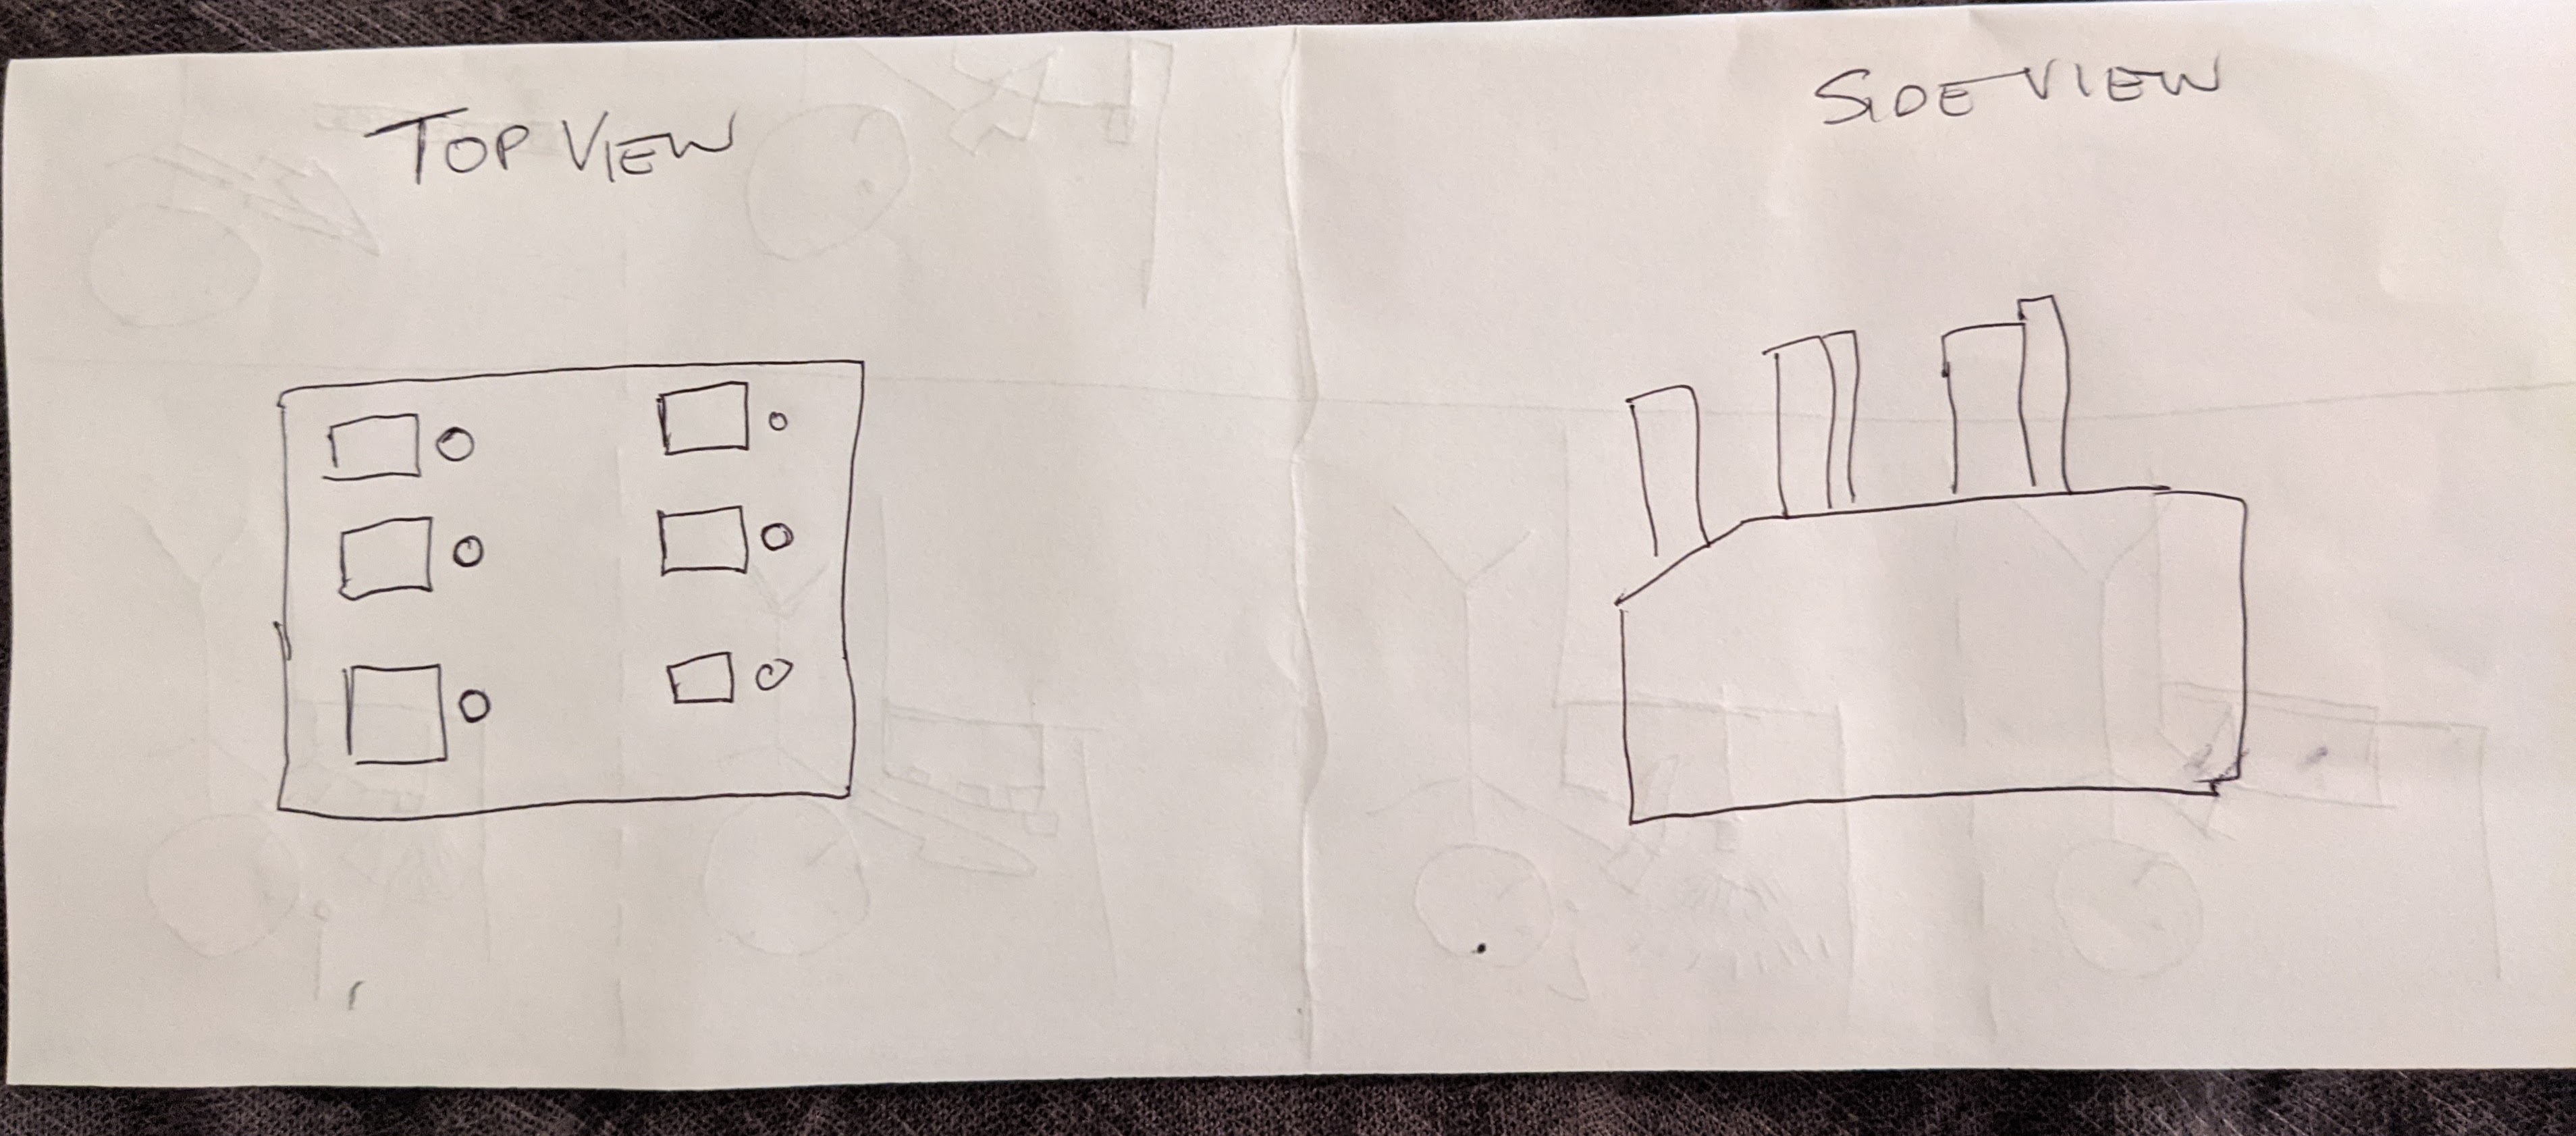 TOP VIEW
SIDE VIEW